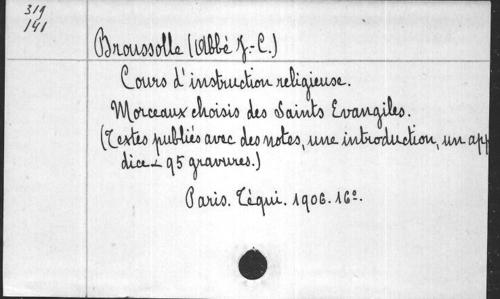 319
141
Broussolle (Abbé J.-C.)
Cours d'instruction religieuse.
Morceaux choisis des Saints Evangiles.
(Textes publiés avec des notes, une introduction, un app
dice & 95 gravures.)
Paris. Téqui. 1906. 16º.